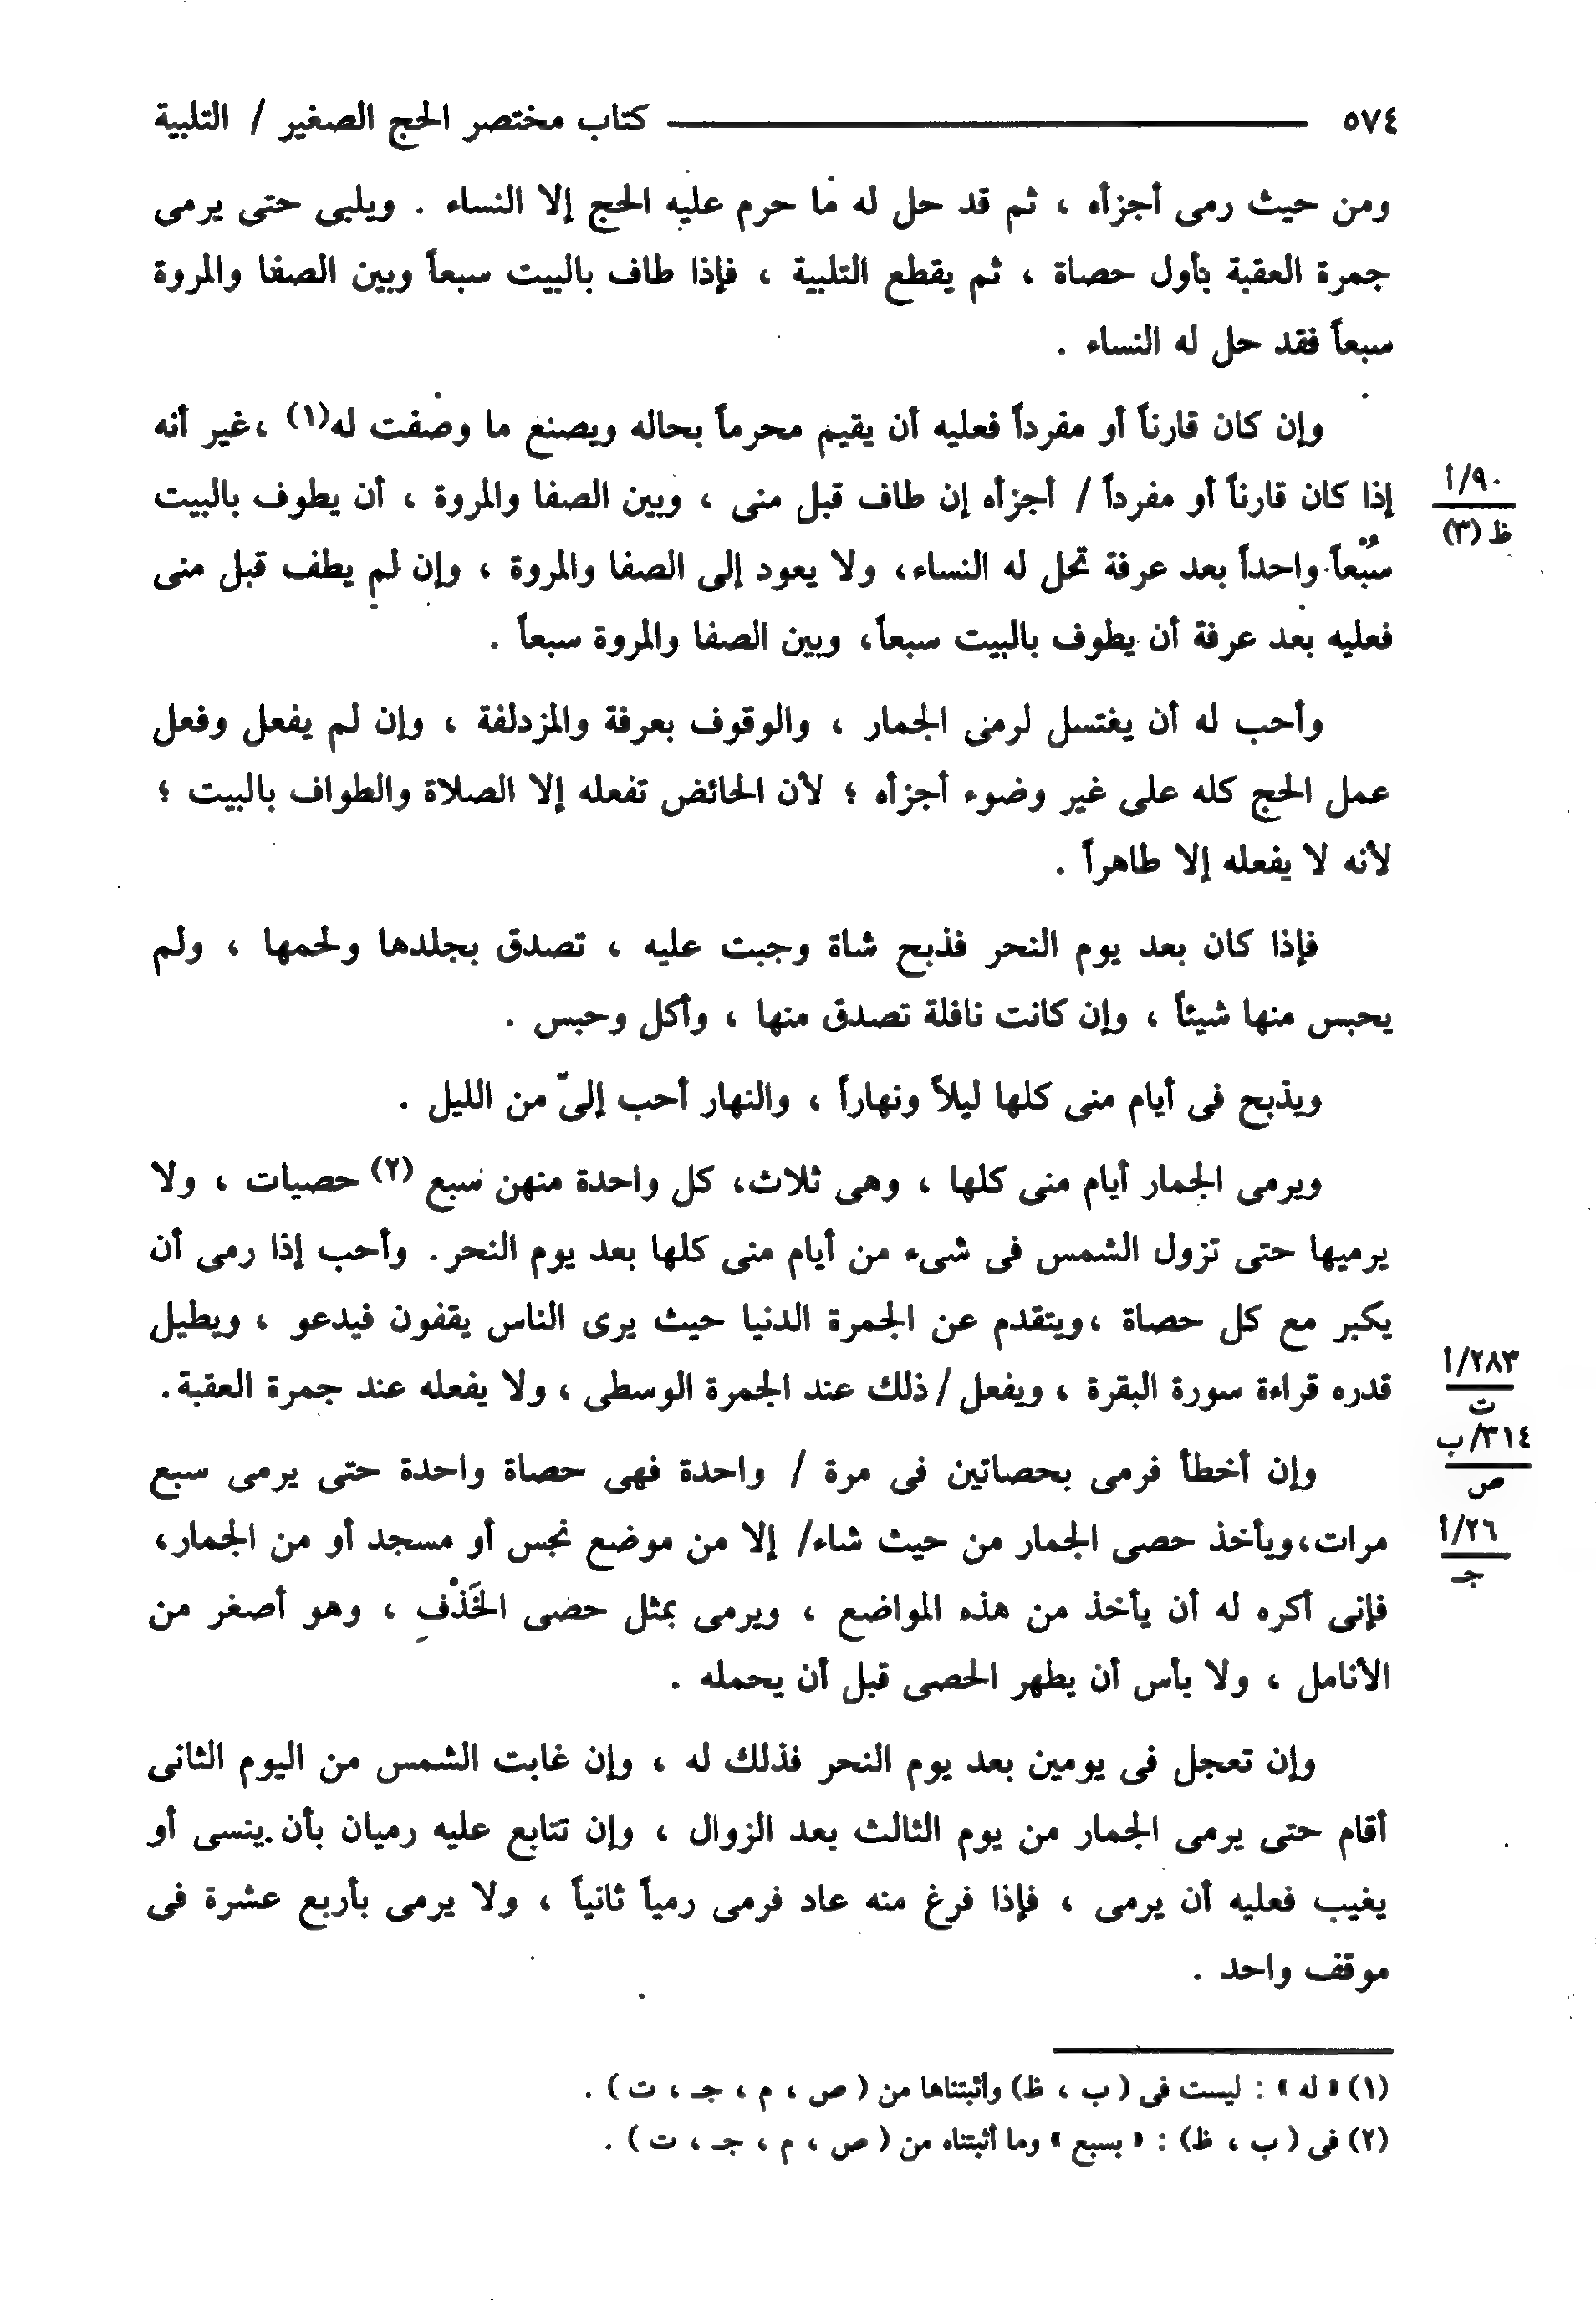 ٥٧٤ كتاب مختصر الحج الصغير / التلبية
ومن حيث رمى أجزأه ، ثم قد حل له ما حرم عليه الحج إلا النساء . ويلبى حتى يرمى
جمرة العقبة بأول حصاة ، ثم يقطع التلبية ، فإذا طاف بالبيت سبعاً وبين الصفا والمروة
سبعاً فقد حل له النساء .
وإن كان قارناً أو مفرداً فعليه أن يقيم محرماً بحاله ويصنع ما وصفت له(١) ،غير أنه
إذا كان قارناً أو مفرداً / أجزأه إن طاف قبل منى ، وبين الصفا والمروة ، أن يطوف بالبيت
٩٠/أ
ظ (٣)
سُبْعاً واحداً بعد عرفة تحل له النساء، ولا يعود إلى الصفا والمروة ، وإن لم يطف قبل منى
فعليه بعد عرفة أن يطوف بالبيت سبعاً، وبين الصفا والمروة سبعاً .
وأحب له أن يغتسل لرمى الجمار ، والوقوف بعرفة والمزدلفة ، وإن لم يفعل وفعل
عمل الحج كله على غير وضوء أجزأه ؛ لأن الحائض تفعله إلا الصلاة والطواف بالبيت ؛
لأنه لا يفعله إلا طاهراً .
فإذا كان بعد يوم النحر فذبح شاة وجبت عليه ، تصدق بجلدها ولحمها ، ولم
يحبس منها شيئاً ، وإن كانت نافلة تصدق منها ، وأكل وحبس .
ويذبح فى أيام منى كلها ليلاً ونهاراً ، والنهار أحب إلىّ من الليل .
ويرمى الجمار أيام منى كلها ، وهى ثلاث، كل واحدة منهن سبع (٢) حصيات ، ولا
يرميها حتى تزول الشمس فى شىء من أيام منى كلها بعد يوم النحر. وأحب إذا رمى أن
يكبر مع كل حصاة ،ويتقدم عن الجمرة الدنيا حيث يرى الناس يقفون فيدعو ، ويطيل
قدره قراءة سورة البقرة ، ويفعل / ذلك عند الجمرة الوسطى ، ولا يفعله عند جمرة العقبة.
٢٨٣/أ
ت
٣١٤/ب
ص
وإن أخطأ فرمى بحصاتين فى مرة / واحدة فهى حصاة واحدة حتى يرمى سبع
مرات،ويأخذ حصى الجمار من حيث شاء/ إلا من موضع نجس أو مسجد أو من الجمار،
٢٦/أ
جـ
فإنى أكره له أن يأخذ من هذه المواضع ، ويرمى بمثل حصى الخَذْفِ ، وهو أصغر من
الأنامل ، ولا بأس أن يطهر الحصى قبل أن يحمله .
وإن تعجل فى يومين بعد يوم النحر فذلك له ، وإن غابت الشمس من اليوم الثانى
أقام حتى يرمى الجمار من يوم الثالث بعد الزوال ، وإن تتابع عليه رميان بأن ينسى أو
يغيب فعليه أن يرمى ، فإذا فرغ منه عاد فرمى رمياً ثانياً ، ولا يرمى بأربع عشرة فى
موقف واحد .
(١) « له » : ليست فى ( ب ، ظ) وأثبتناها من ( ص ، م ، جـ ، ت ) .
(٢) فى ( ب ، ظ) : « بسبع » وما أثبتناه من ( ص ، م ، جـ ، ت ) .